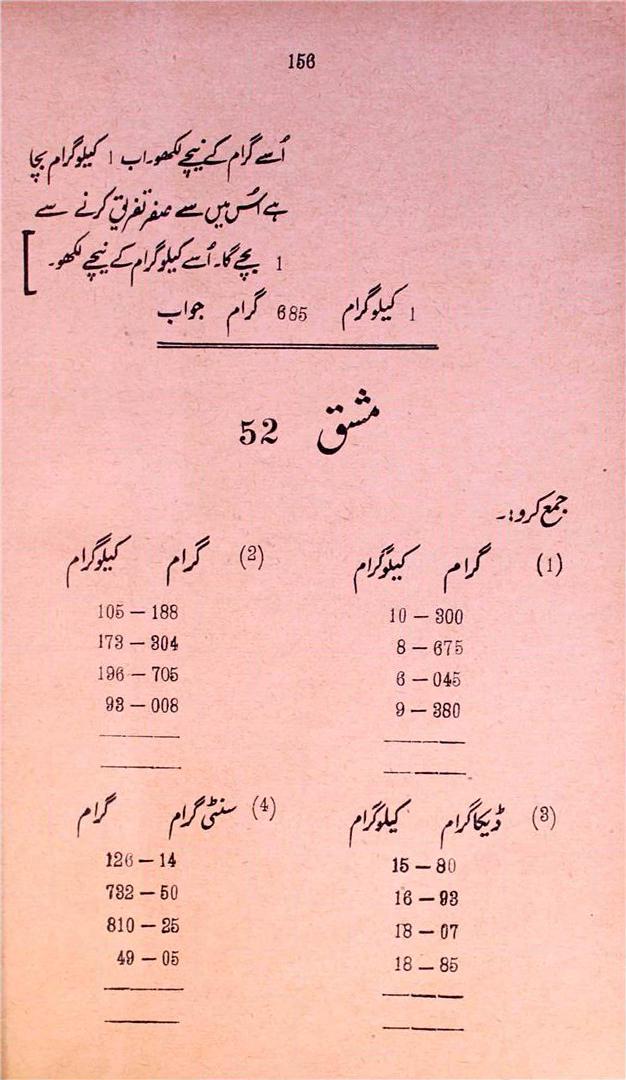 156
اُسے گرام کے نیچے لکھو۔ اب 1 کیلوگرام بچا
ہے اُس میں سے صفر تفریق کرنے سے
1 بچے گا۔ اُسے کیلوگرام کے نیچے لکھو۔ ]
1 کیلوگرام 685 گرام جواب
مشق 52
جمع کرو:۔
(1) گرام کیلوگرام
10 — 300
8 — 675
6 — 045
9 — 380
(2) گرام کیلوگرام
105 — 188
173 — 304
196 — 705
93 — 008
(3) ڈیکاگرام کیلوگرام
15 — 80
16 — 93
18 — 07
18 — 85
(4) سنٹی گرام گرام
126 — 14
732 — 50
810 — 25
49 — 05